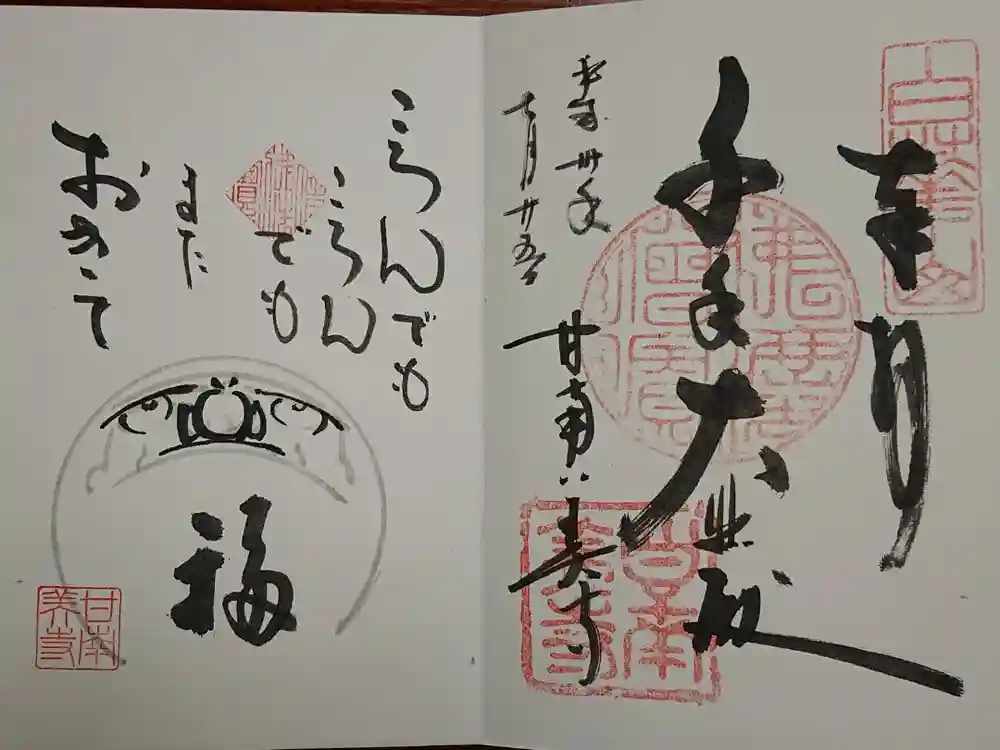 奉拝
千手大悲殿
甘南美寺
平成卅年
七月廿五日
甘南美寺
ころんでも
ころん
でも
また
おきて
福
甘南美寺